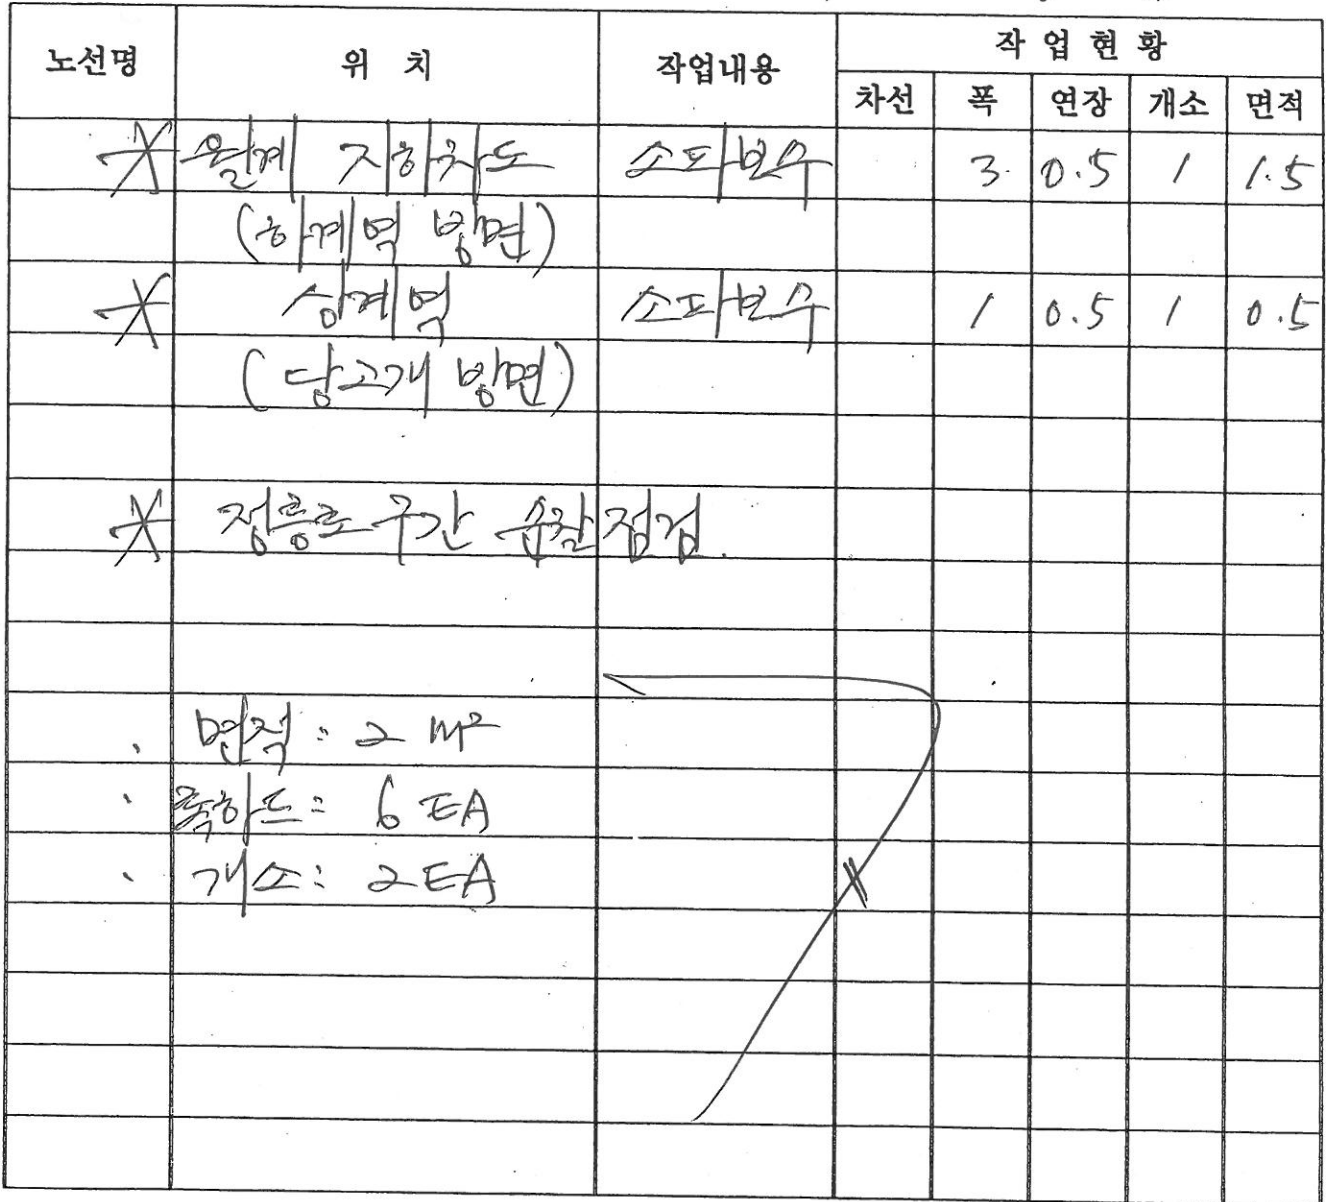 작 업 현 황
노선명 위 치 작업내용 차선 폭 연장 개소 면적
* 월계 지하차도 소파보수 3. 0.5 1 1.5
(하계역 방면)
* 상계역 소파보수 1 0.5 1 0.5
(당고개 방면)
* 정릉로 구간 순찰점검.
면적: 2 m²
폭하드: 6 EA
개소: 2 EA